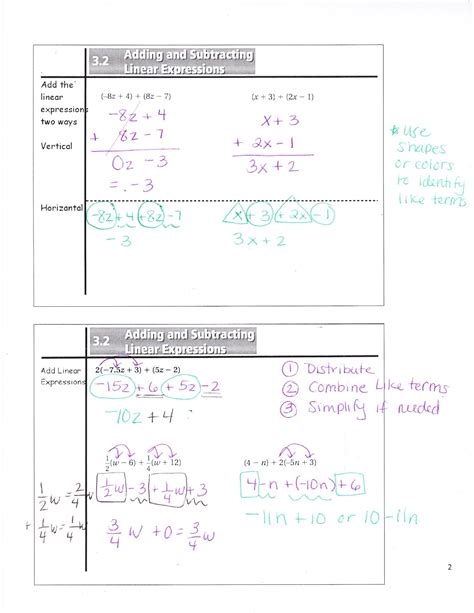 3.2 Adding and Subtracting
Linear Expressions
Add the
linear
expressions
two ways
(-8z + 4) + (8z - 7)
(x + 3) + (2x - 1)
Vertical
-8z + 4
+ 8z - 7
0z - 3
= -3
x + 3
+ 2x - 1
3x + 2
*use
shapes
or colors
to identify
like terms
Horizontal
-8z + 4 + 8z - 7
-3
x + 3 + 2x - 1
3x + 2
3.2 Adding and Subtracting
Linear Expressions
Add Linear
Expressions
2(-7.5z + 3) + (5z - 2)
-15z + 6 + 5z - 2
-10z + 4
① Distribute
② Combine Like terms
③ Simplify if needed
1/2(w - 6) + 1/4(w + 12)
1/2w - 3 + 1/4w + 3
3/4w + 0 = 3/4w
1/2w = 2/4w
+ 1/4w = 1/4w
(4 - n) + 2(-5n + 3)
4 - n + (-10n) + 6
-11n + 10 or 10 - 11n
2